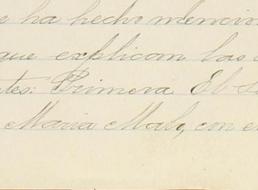 e ha hecho mencion
que explican las
tes: Primera El
Maria Malo, con e